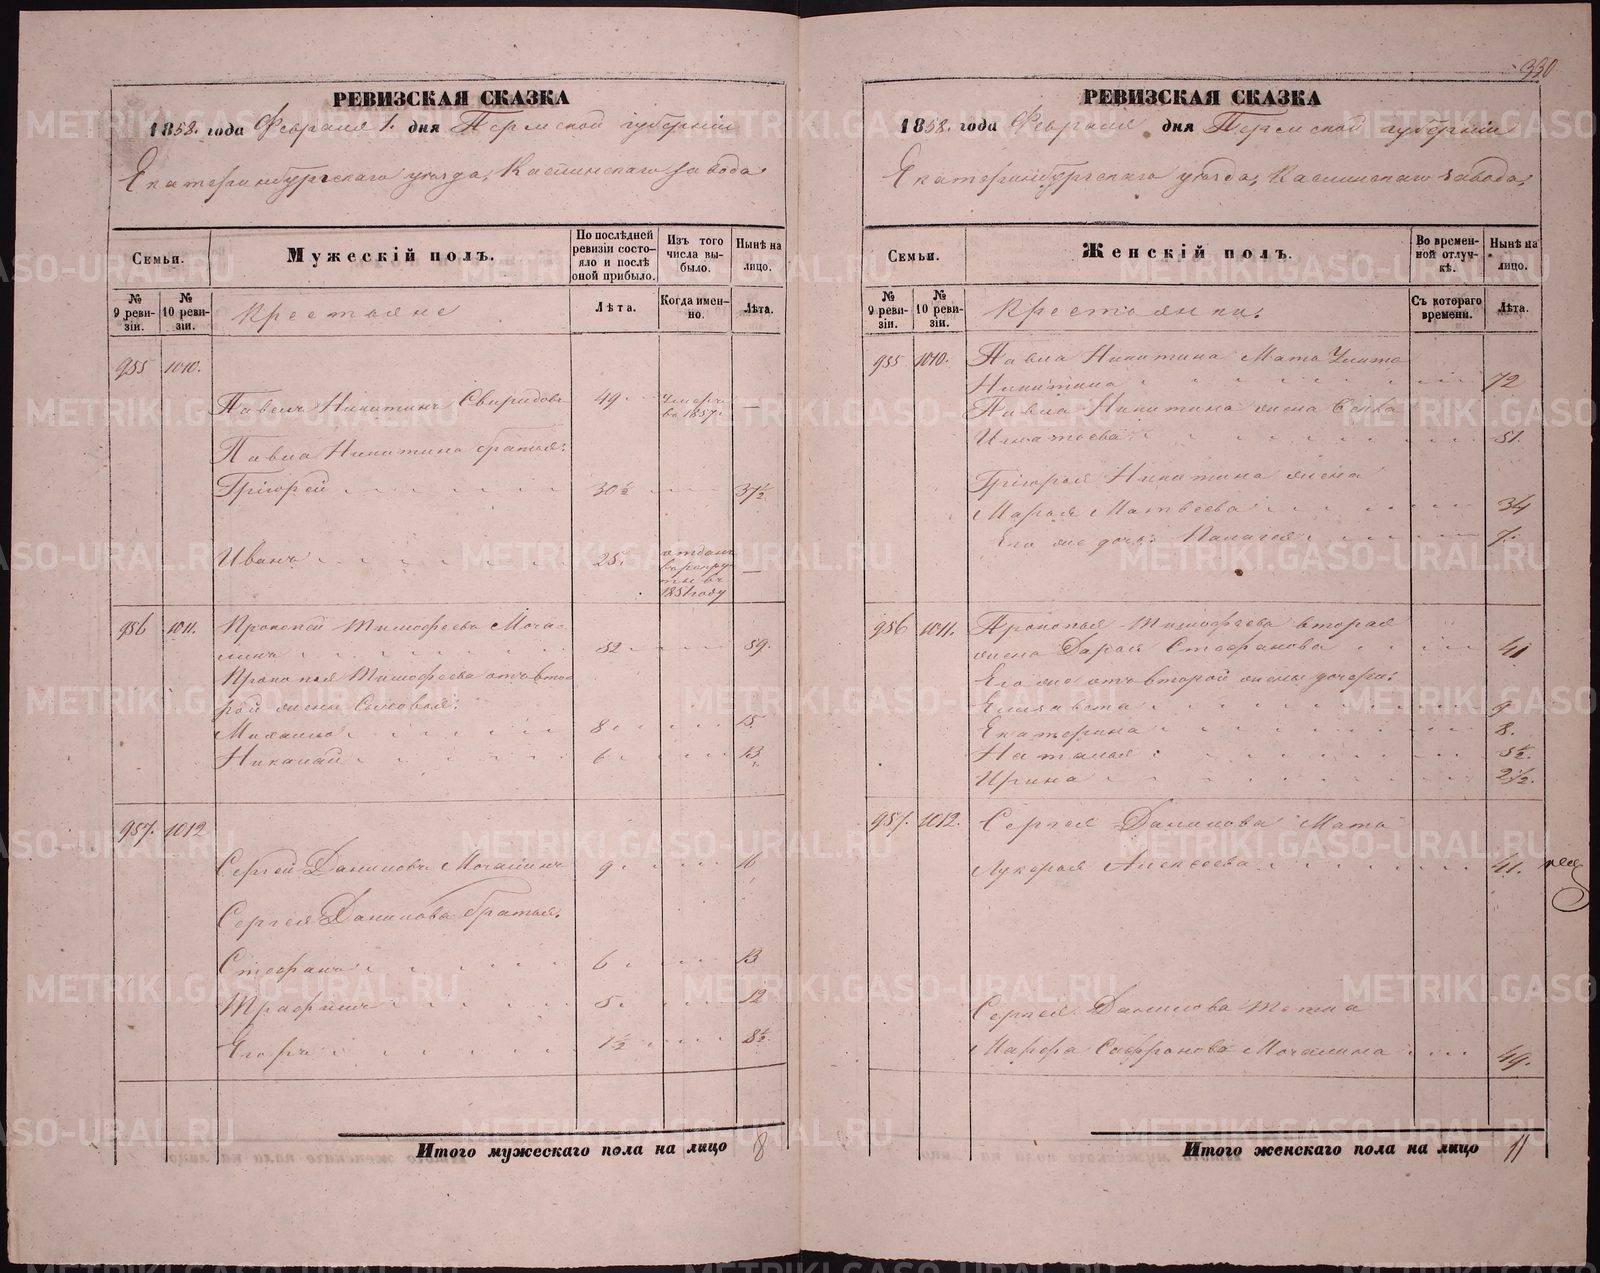 330
РЕВИЗСКАЯ СКАЗКА
1858. года Февраля 1. дня Пермской губернiи
Екатеринбургскаго уѣзда, Каслинскаго завода
Семьи.
Мужескiй полъ.
По послѣдней ревизiи состояло и послѣ оной прибыло.
Изъ того числа выбыло.
Нынѣ на лицо.
№ 9 ревизiи.
№ 10 ревизiи.
Крестьяне
Лѣта.
Когда именно.
Лѣта.
955 1010.
Павелъ Никитинъ Свиридовъ 49. умеръ въ 1857г. —
Павла Никитина братья:
Григорей 30½ 37½
Иванъ 25. отданъ въ рекруты въ 1851 году —
956 1011. Прокопей Тимофеевъ Моча-
линъ 52 59.
Прокопья Тимофеева отъ вто-
рой жены сыновья:
Михайло 8 15
Николай 6 13
957. 1012
Сергей Даниловъ Мочалинъ 9. 16
Сергея Данилова братья.
Стефанъ 6 13
Трафимъ 5. 12
Егоръ 1½ 8½
Итого мужескаго пола на лицо 8
РЕВИЗСКАЯ СКАЗКА
1858. года Февраля дня Пермской губернiи
Екатеринбургскаго уѣзда, Каслинскаго завода,
Семьи.
Женскiй полъ.
Во временной отлучкѣ.
Нынѣ на лицо.
№ 9 ревизiи.
№ 10 ревизiи.
Крестьянки.
Съ котораго времени.
Лѣта.
955 1010. Павла Никитина Мать Улита
Никитина 72
Павла Никитина жена
Игнатьева 51.
Григорья Никитина жена
Марья Матвеева 34
Его же дочь: Палагея 7.
956 1011. Прокопья Тимофеева вторая
жена Дарья Стефанова 41
Его же отъ второй жены дочери:
Елизавета 9
Екатерина 8.
Наталья 5½.
Ирина 2½.
957. 1012. Сергея Данилова Мать
Лукерья Алексеева 41.
Сергея Данилова тетка
Марфа Сафронова Мочалина 49.
Итого женскаго пола на лицо 11
METRIKI.GASO-URAL.RU